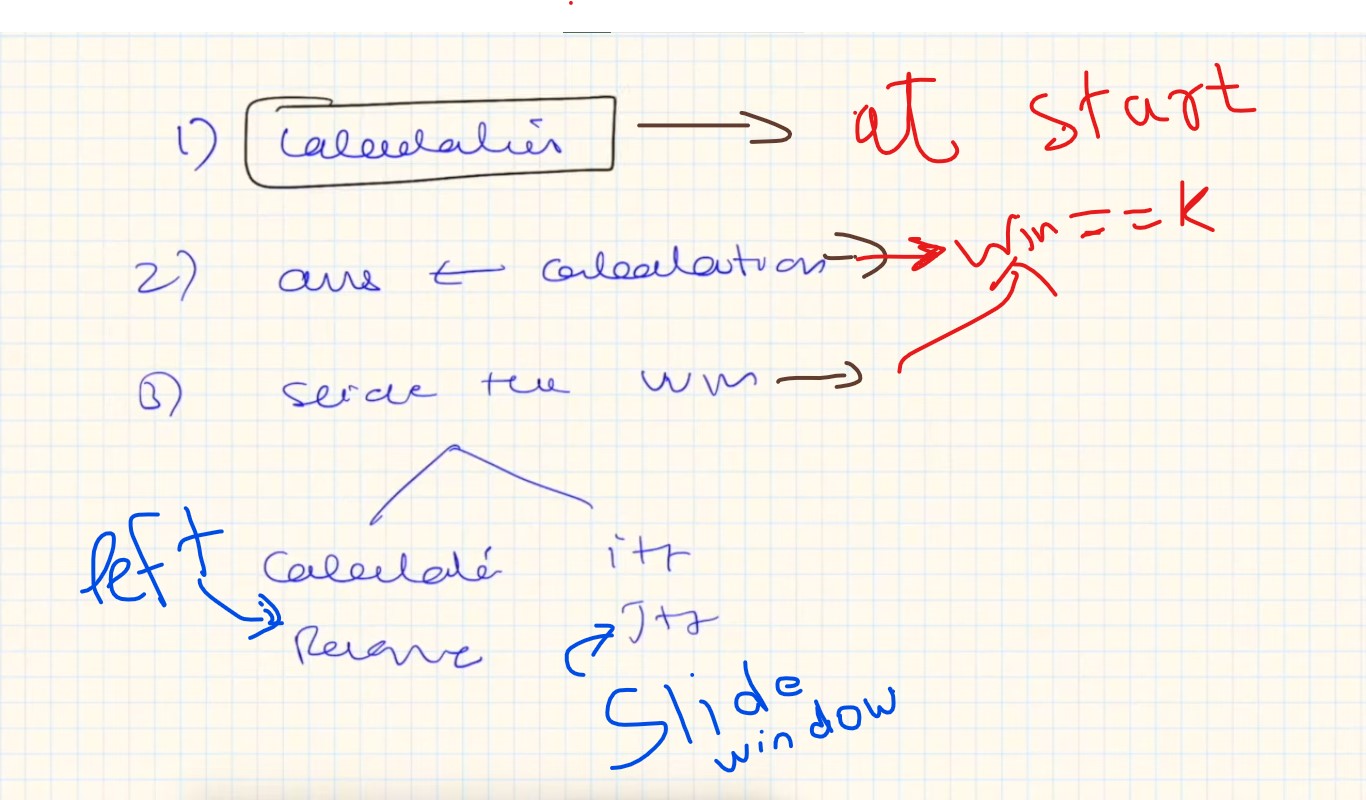 1) Calculation → at start
2) ans ← calculation → win == K
3) slide the win →
left
Calculate i++
Remove J++
Slide
window